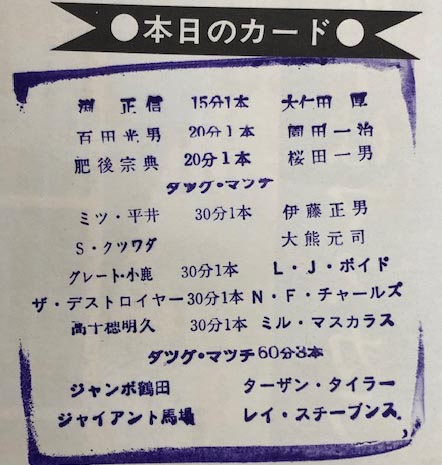 ●本日のカード●
渕 正信 15分1本 大仁田 厚
百田光男 20分1本 園田一治
肥後宗典 20分1本 桜田一男
タッグ・マッチ
ミツ・平井 30分1本 伊藤正男
S・クツワダ 大熊元司
グレート・小鹿 30分1本 L・J・ボイド
ザ・デストロイヤー 30分1本 N・F・チャールズ
高千穂明久 30分1本 ミル・マスカラス
タツグ・マツチ 60分3本
ジャンボ鶴田 ターザン・タイラー
ジャイアント馬場 レイ・スチーブンス